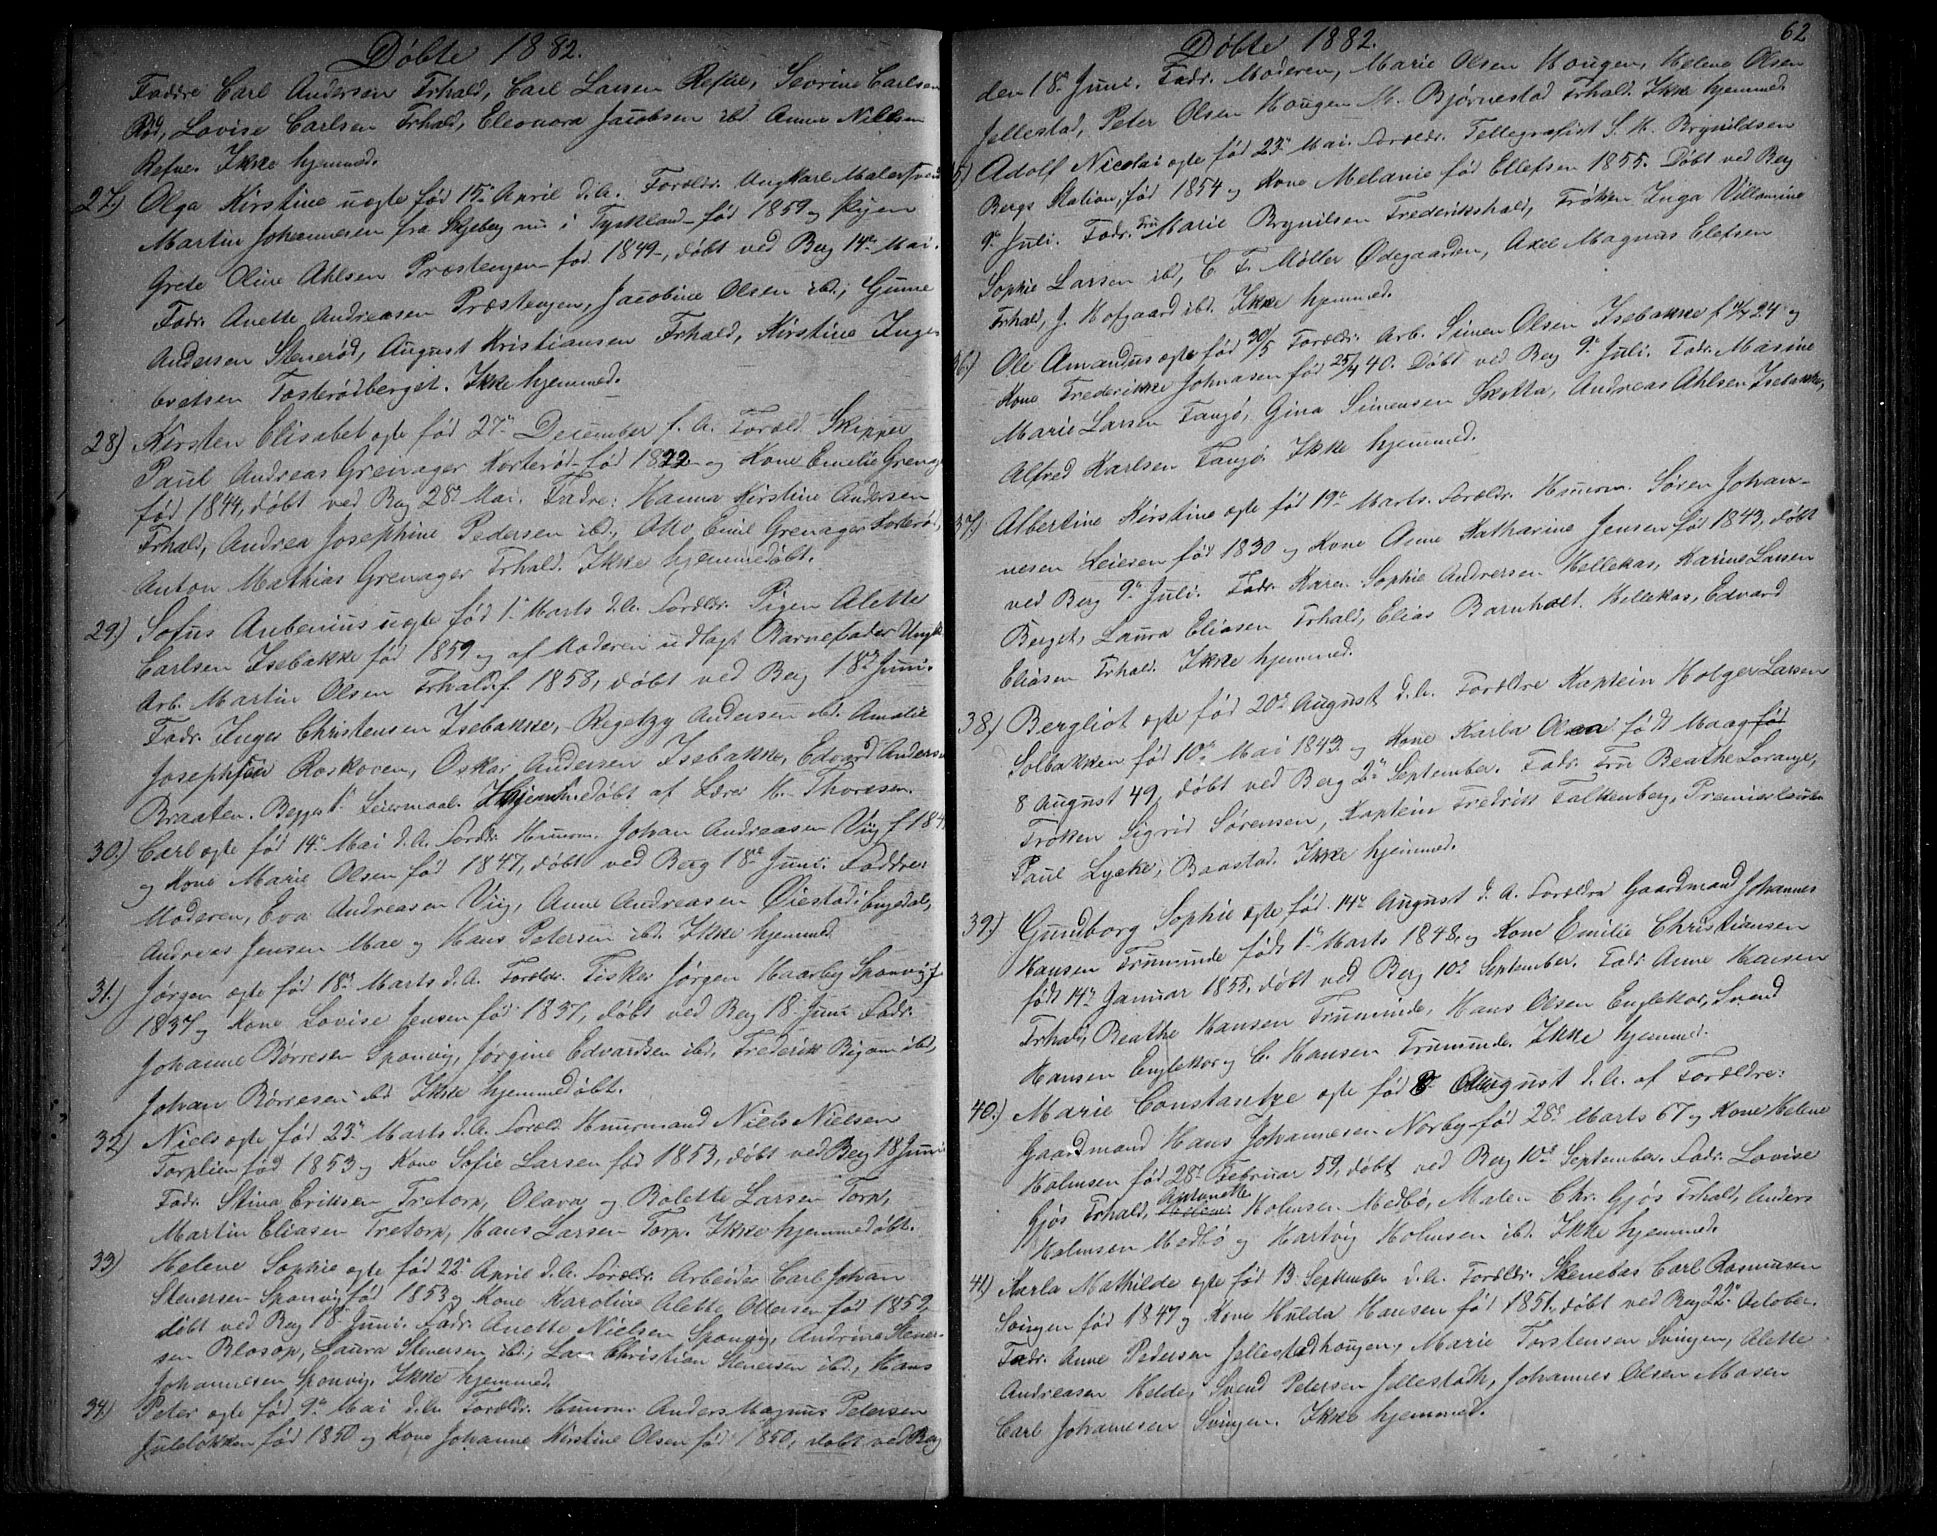 Døbte 1882.
Faddre Carl Andersen Frhald, Carl Larsen Refne, Severine Carlsen
Rød, Lovise Carlsen Frhald, Eleonora Jacobsen ibd Anna Nilsen
Refne. Ikke hjemmed.
27.) Olga Kirstine uegte fød 15de April d.A. Foreldr. Ungkarl Malersvend
Martin Johannesen fra Skjeberg nu i Tyskland fød 1859 og Pigen
Grete Oline Ahlsen Præstengen fød 1849, døbt ved Berg 14de Mai.
Fadr. Anette Andreasen Præstengen, Jacobine Olsen ibd, Gunne
Andersen Stenerød, August Kristiansen Frhald, Kirstine Inge-
bretsen Tosterødberget. Ikke hjemmed.
28) Kirsten Elisabet egte fød 27de December f. A. Foreld. Skipper
Paul Andreas Greivager Korterød fød 1822 og Kone Emelie Grenag
fød 1844, døbt ved Berg 28de Mai. Fadre: Hanna Kirstine Andersen
Frhald, Andrea Josephine Pedersen ibd, Otto Emil Grenager Korterød,
Anton Mathias Grenager Frhald. Ikke hjemmedøbt.
29.) Sofus Anbenius uegte fød 1ste Marts d.A. Foreldr. Pigen Alette
Carlsen Isebakke fød 1859 og af Moderen udlagt Barnefader Ungk
Arb. Martin Olsen Frhald f. 1858, døbt ved Berg 18de Juni.
Fadr. Inger Christensen Isebakke, Regetzy Andersen ibd. Amalie
Josephsen Roskoven, Oskar Andersen Isebakke, Edvard Anders
Braaten. Begges 1ste Leiermaal. Hjemmedøbt af Lærer H. Thoresen.
30.) Carl egte fød 14de Mai d.A. Foreldr. Husm. Johan Andreasen Viig f 184
og Kone Marie Olsen fød 1847, døbt ved Berg 18de Juni. Faddre:
Moderen, Eva Andreasen Viig, Anne Andreasen Øiestad i Engedal,
Andreas Jensen Moe og Hans Petersen ibd. Ikke hjemmed.
31.) Jørgen egte fød 18de Marts d.A. Foreldr. Fisker Jørgen Haarby Sponvig f
1837 og Kone Lovise Jensen fød 1837, døbt ved Berg 18 Juni Fadr.
Johanne Børresen Sponvig, Jørgine Edvardsen ibd, Frederik Bigum ibd,
Johan Børresen ibd Ikke hjemmedøbt.
32) Niels egte fød 23de Marts d.A. Foreld Husmand Niels Nielsen
Torplien fød 1853 og Kone Sofie Larsen fød 1853, døbt ved Berg 18 Juni
Fadr. Stina Eriksen Tretorp, Olava og Bolette Larsen Torp,
Martin Eliasen Tretorp, Hans Larsen Torp. Ikke hjemmedøbt.
33) Helene Sophie egte fød 22de April d.A. Foreldr. Arbeider Carl Johan
Stenersen Sponvig fød 1853 og Kone Karoline Alette Ottersen fød 1859,
døbt ved Berg 18de Juni. Fadr. Anette Nielsen Sponvig, Andrine Stener-
sen Blosop, Laura Stenersen ibd, Lars Christian Stenersen ibd, Hans
Johannesen Sponvig. Ikke hjemmed.
34) Peter egte fød 9de Mai d.A. Foreldr. Husm Anders Magnus Petersen
Juleløkken fød 1850 og Kone Johanne Kirstine Olsen fød 1850, døbt ved Berg
62
Døbte 1882.
den 18. Juni. Fadr. Moderen, Marie Olsen Hougen, Helene Olsen
Jellestad, Peter Olsen Hougen M. Bjørnestad Frhald. Ikke hjemmed.
5) Adolf Nicolai egte fød 23de Mai. Foreldr. Tellegrafist S. H. Brynildsen
Bergs Station, fød 1854 og Kone Melanie fød Ellefsen 1855. Døbt ved Berg
9de Juli. Fadr. Fru Marie Brynilsen Frederikshald, Frøken Inga Villamine
Sophie Larsen ibd, C. F. Møller Ødegaarden, Axel Magnus Elefsen
Frhald, J. Hofgaard ibd. Ikke hjemmed.
36.) Ole Amandus egte fød 30/5 Foreldr. Arb. Simen Olsen Isebakke f 24 og
Kone Frederikke Johnasen fød 25/4 40. Døbt ved Berg 9de Juli. Fadr. Masine
Marie Larsen Fangø, Gina Simensen Skotta, Andreas Ahlsen Isebakke,
Alfred Karlsen Fangø Ikke hjemmed.
37.) Albertine Kirstine egte fød 19de Marts. Foreldr. Husm. Søren Johan-
nesen Leiesen fød 1830 og Kone Anne Katharine Jensen fød 1843, døbt
ved Berg 9de Juli. Fadr. Karen Sophie Andersen Hellekas, Karine Larsen
Berget, Laura Eliasen Frhald, Elias Barnholt Hellekas, Edvard
Eliasen Frhald. Ikke hjemmed.
38.) Bergliot egte fød 20de August d.A. Foreldre Kaptein Holger Larsen
Solbakken fød 10de Mai 1843 og Kone Karba Olsen født Maag fød
8 August 49, døbt ved Berg 2de September. Fadr. Fru Beathe Lorange,
Frøken Sigrid Sørensen, Kaptein Fredrik Falkenberg, Premierleutn
Paul Lycke, Baastad. Ikke hjemmed.
39.) Gundborg Sophie egte fød 14de August d.A. Foreldre Gaardmand Johannes
Hansen Trumunde født 1ste Marts 1848 og Kone Emilie Christiansen
født 14de Januar 1855, døbt ved Berg 10de September. Fadr. Anne Hansen
Frhald, Beathe Hansen Trumunde, Hans Olsen Englekor, Svend
Hansen Englekor og C. Hansen Trumunde. Ikke hjemmed.
40.) Marie Constantze egte fød 8 August d.A. af Foreldre:
Gaardmand Hans Johannesen Nørby fød 28de Marts 67 og Kone Helene
Holmsen fød 28de Februar 59, døbt ved Berg 10de September. Fadr. Lovise
Gjøs Frhald, Antonette Holmsen Medbø, Malen Chr. Gjøs Frhald, Anders
Holmsen Medbø og Hartvig Holmsen ibd. Ikke hjemmed.
41) Karla Mathilde egte fød 13 September d.A. Foreldr. Skenebas Carl Rasmusen
Svingen fød 1847 og Kone Hulda Hansen fød 1851, døbt ved Berg 22de October.
Fadr. Anne Pedersen Jellestadhougen, Marie Torstensen Svingen, Alette
Andreasen Helde, Svend Petersen Jellestadh, Johannes Olsen Mosen
Carl Johannesen Svingen. Ikke hjemmed.